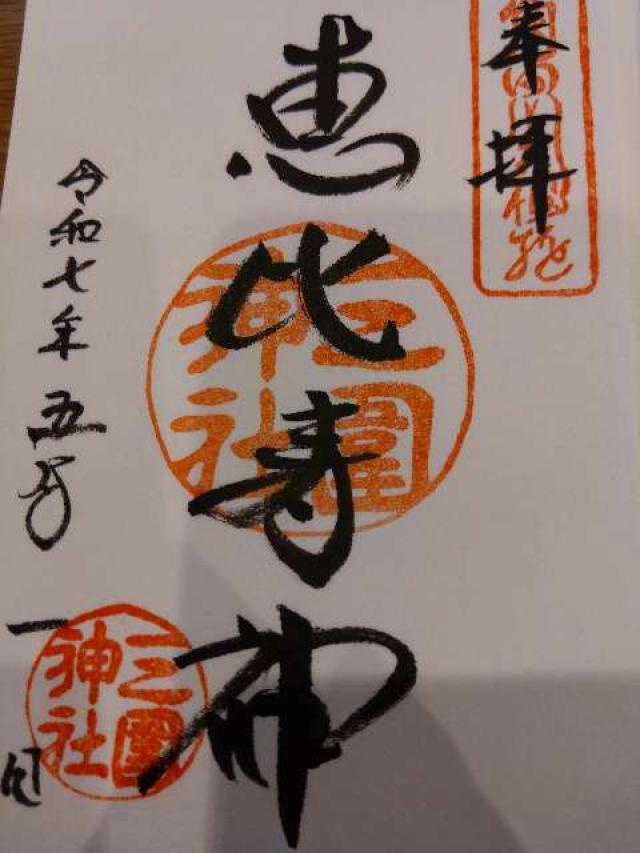 奉拝
恵比寿神
三圍神社
令和七年五月一日
三圍神社